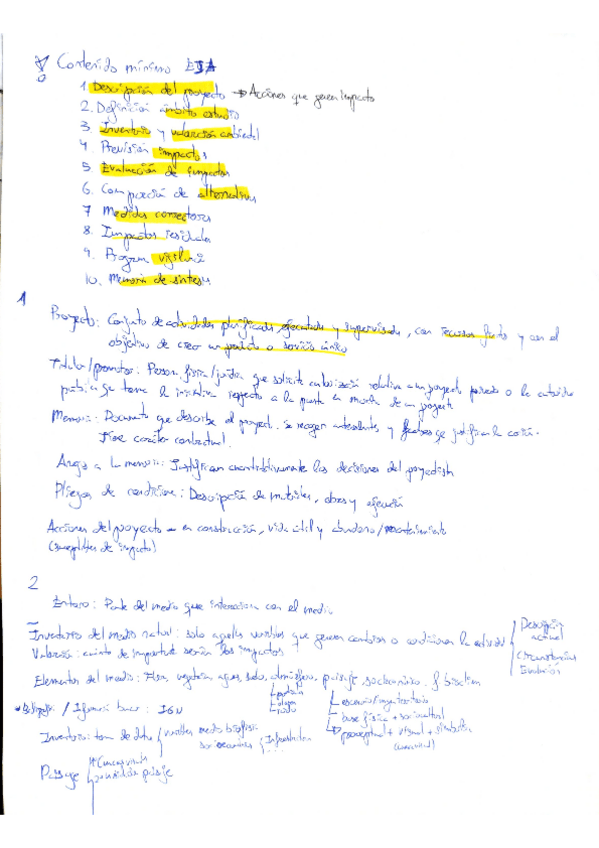 Contenido mínimo EIA
1. Descripción del proyecto → Acciones que generen impacto
2. Definición ámbito estudio
3. Inventario y valoración ambiental
4. Previsión impactos
5. Evaluación de impactos
6. Comparación de alternativas
7 Medidas correctoras
8. Impactos residuales
9. Program vigilancia
10. Memoria de síntesis
1
Proyecto: Conjunto de actividades planificadas, ejecutadas y supervisadas, con recursos finitos y con el
objetivo de crear un producto o servicio único
Titular/promotor: Persona física/jurídica que solicita autorización relativa a un proyecto privado o la autoridad
pública que toma la iniciativa respecto a la puesta en marcha de un proyecto
Memoria: Documento que describe el proyecto. Se recogen antecedentes y
Tiene carácter contractual.
Anejos a la memoria: Justifican cuantitativamente las decisiones del proyectista
Pliegos de condiciones: Descripción de materiales, obras y ejecución
Acciones del proyecto → en construcción, vida útil y abandono/
(susceptibles de impacto)
2
Entorno: Parte del medio que interacciona con el medio
Inventarios del medio natural: solo aquellas variables que generen cambios o condicionen la actividad
Descripción actual
Circunstancias
Evolución
Valoración: cuánto de importante serían los impactos
Elementos del medio: Flora, vegetación, agua, suelo, atmósfera, paisaje, socioeconómico
base física + sociocultural
perceptual + visual + simbólico
/ Información base: IGN
Inventario: toma de datos medio biofísico
socioeconómico
Infraestructuras
Paisaje